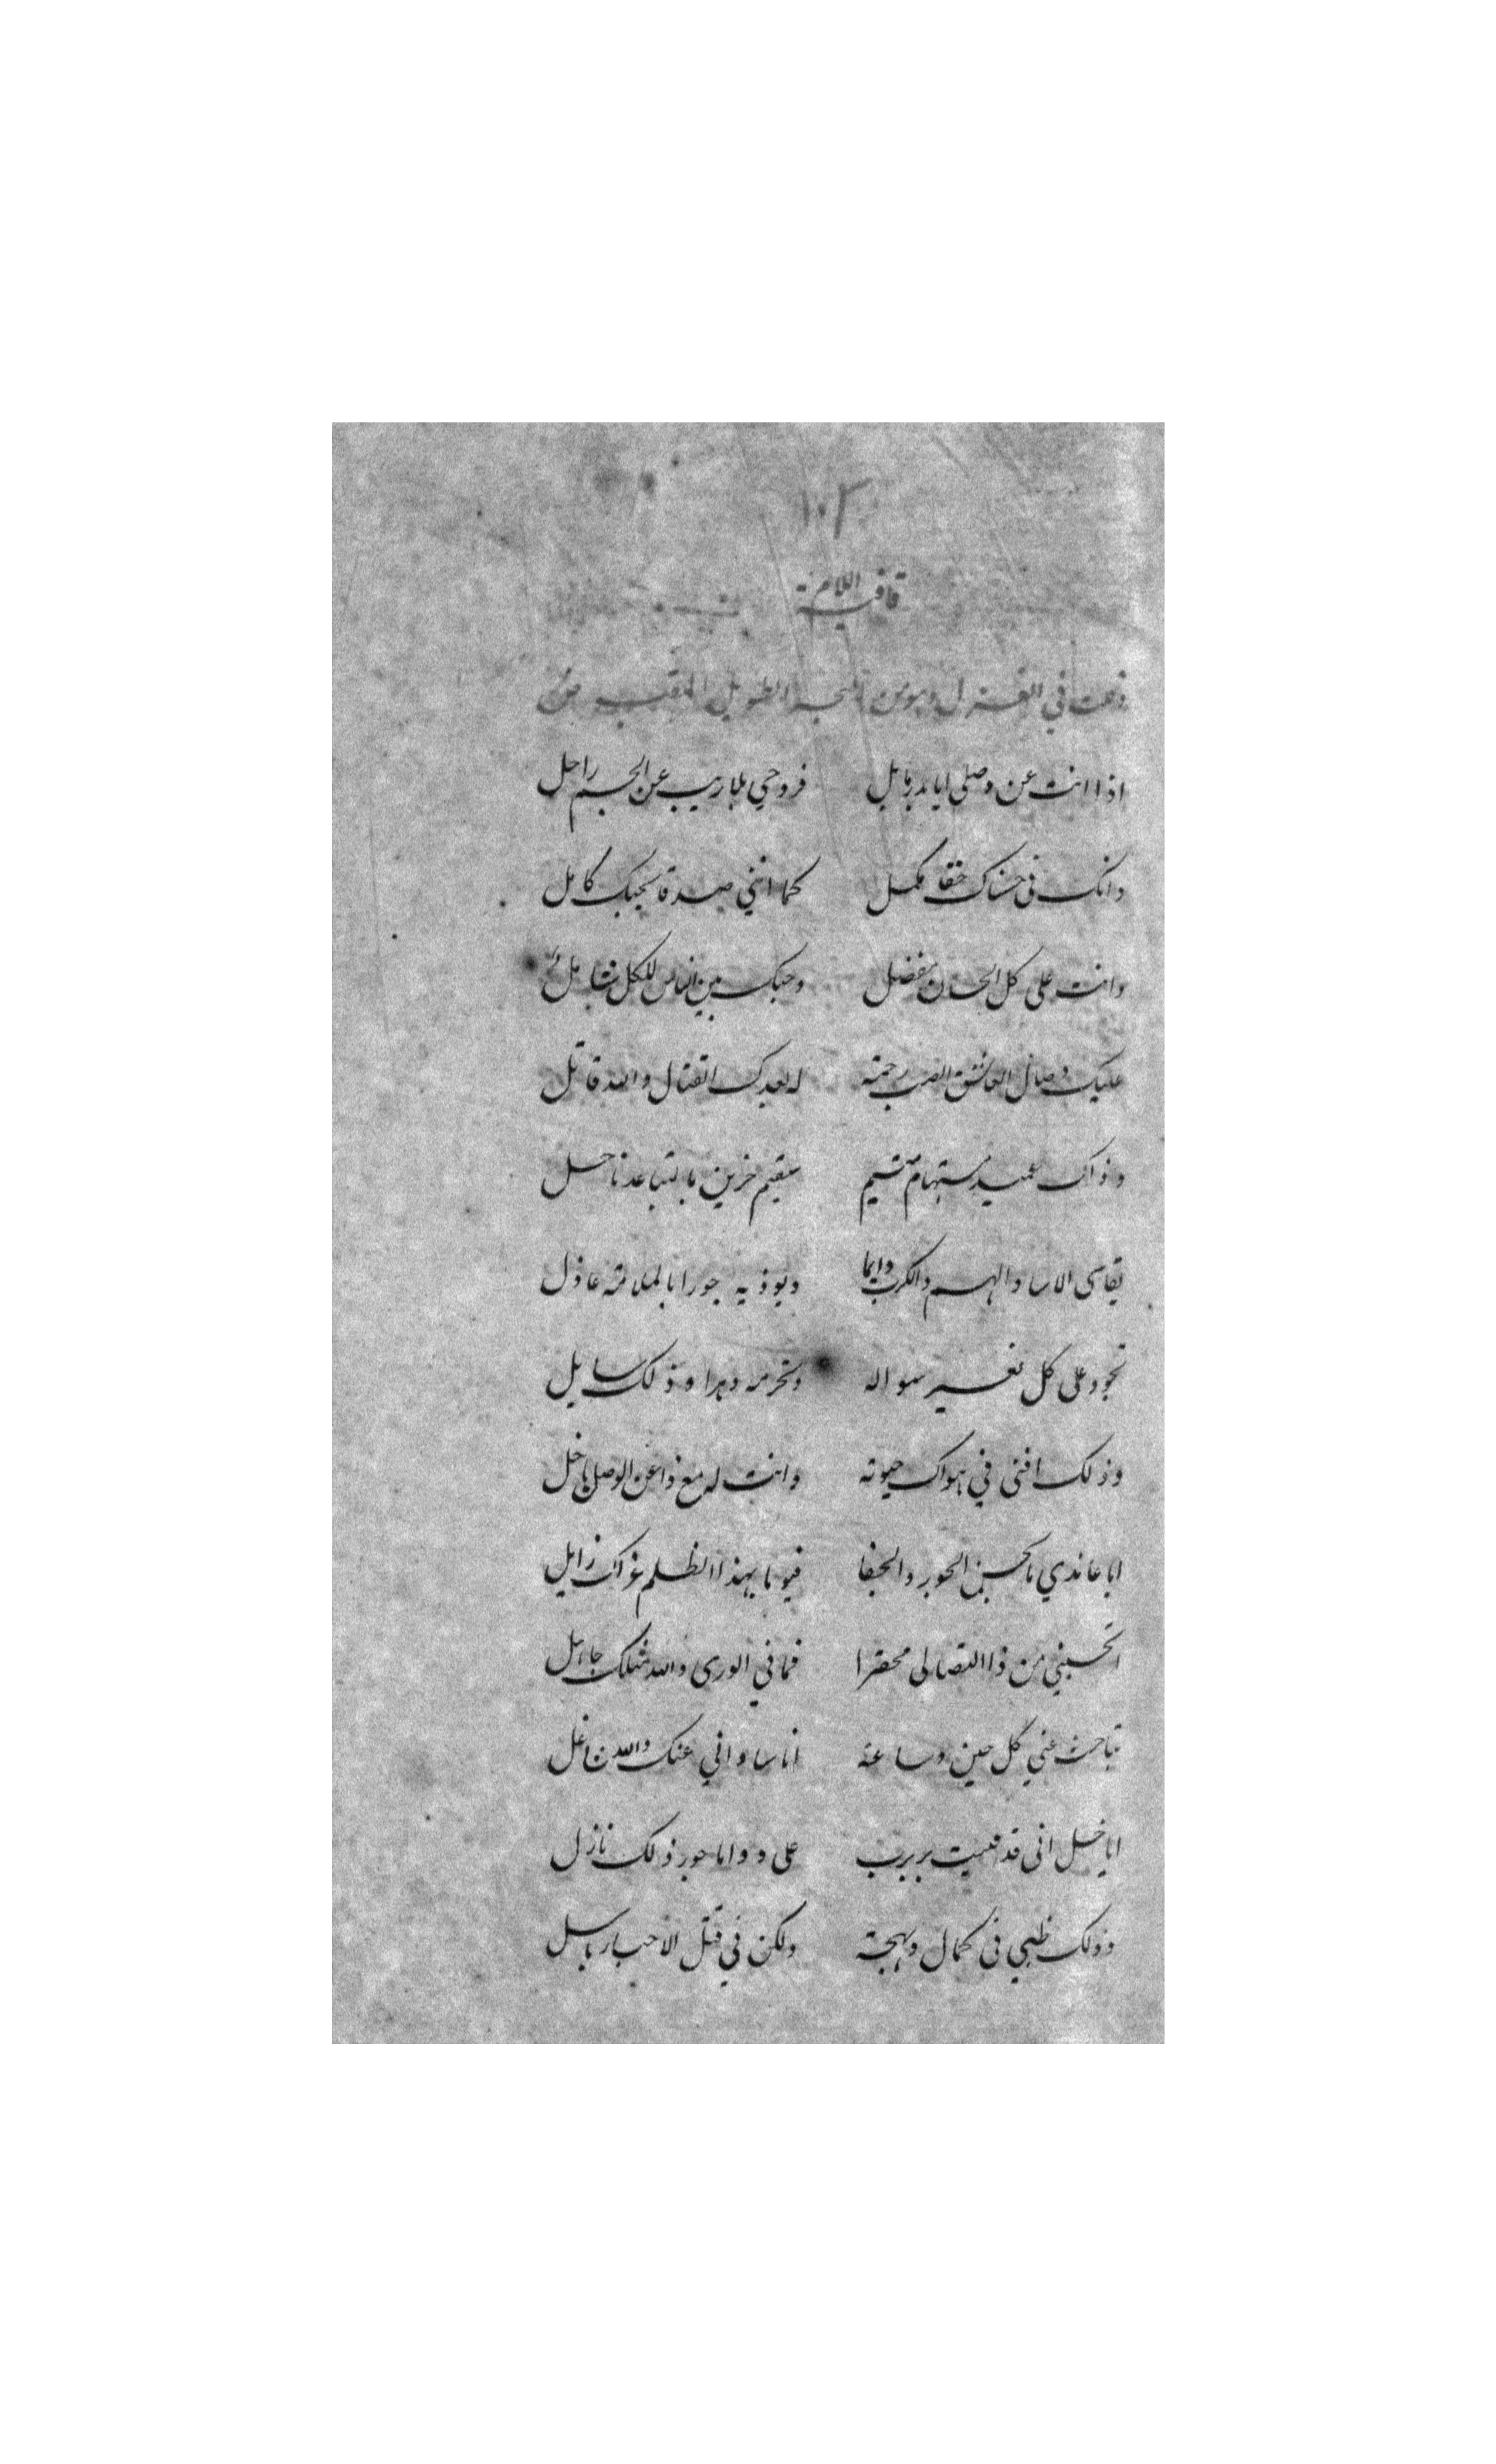 ١٠٢
قافية اللام
في الغزل وهو من البحر الطويل
اذا انت عن وصلي ايا بدر مايل فروحي بلا ريب عن الجسم راحل
وانك في حسناك حقا مكمل كما انني صدقا بحبك كامل
وانت على كل الحسان مفضل وحبك بين الناس للكل شامل
عليك وصال العاشق الصب رحمة لبعدك القتال والله قاتل
وذاك عميد مستهام متيم سقيم حزين بالتباعد ناحل
يقاسى الاسا والهم والكرب دايما ويوذيه جورا بالملامة عاذل
تجود على كل بغير سواله وتحرمه دهرا وذلك سايل
وذلك افنى في هواك حيوته وانت له مع ذا عن الوصل باخل
ايا عاندي بالحسن الجور والجفا فيوما بهذا الظلم عزك زايل
اتحسبني من ذا التصالى محقرا فما في الورى والله مثلك جاهل
تباحث عني كل حين وساعة اناسا واني عنك والله غافل
ايا خل اني قد بربرب على دواما جور ذلك نازل
وذلك ظبي في كمال وبهجة ولكن في قتل الاحبا باسل